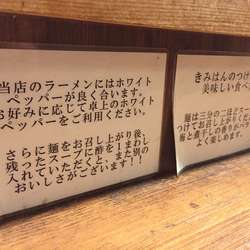 当店のラーメンにはホワイト
ペッパーが良く合います。
お好みに応じて卓上のホワイト
ペッパーをご利用ください。
さらに麺をお召し上がり後、
残ったスープに酢を1まわし
入れていただくと、また別の
おいしさがございます!
きみはんのつけ
美味しい食べ
麺は三分の二ほどで
つけてお召し上がりくだ
と煮干しの香りが
よく楽しめます。